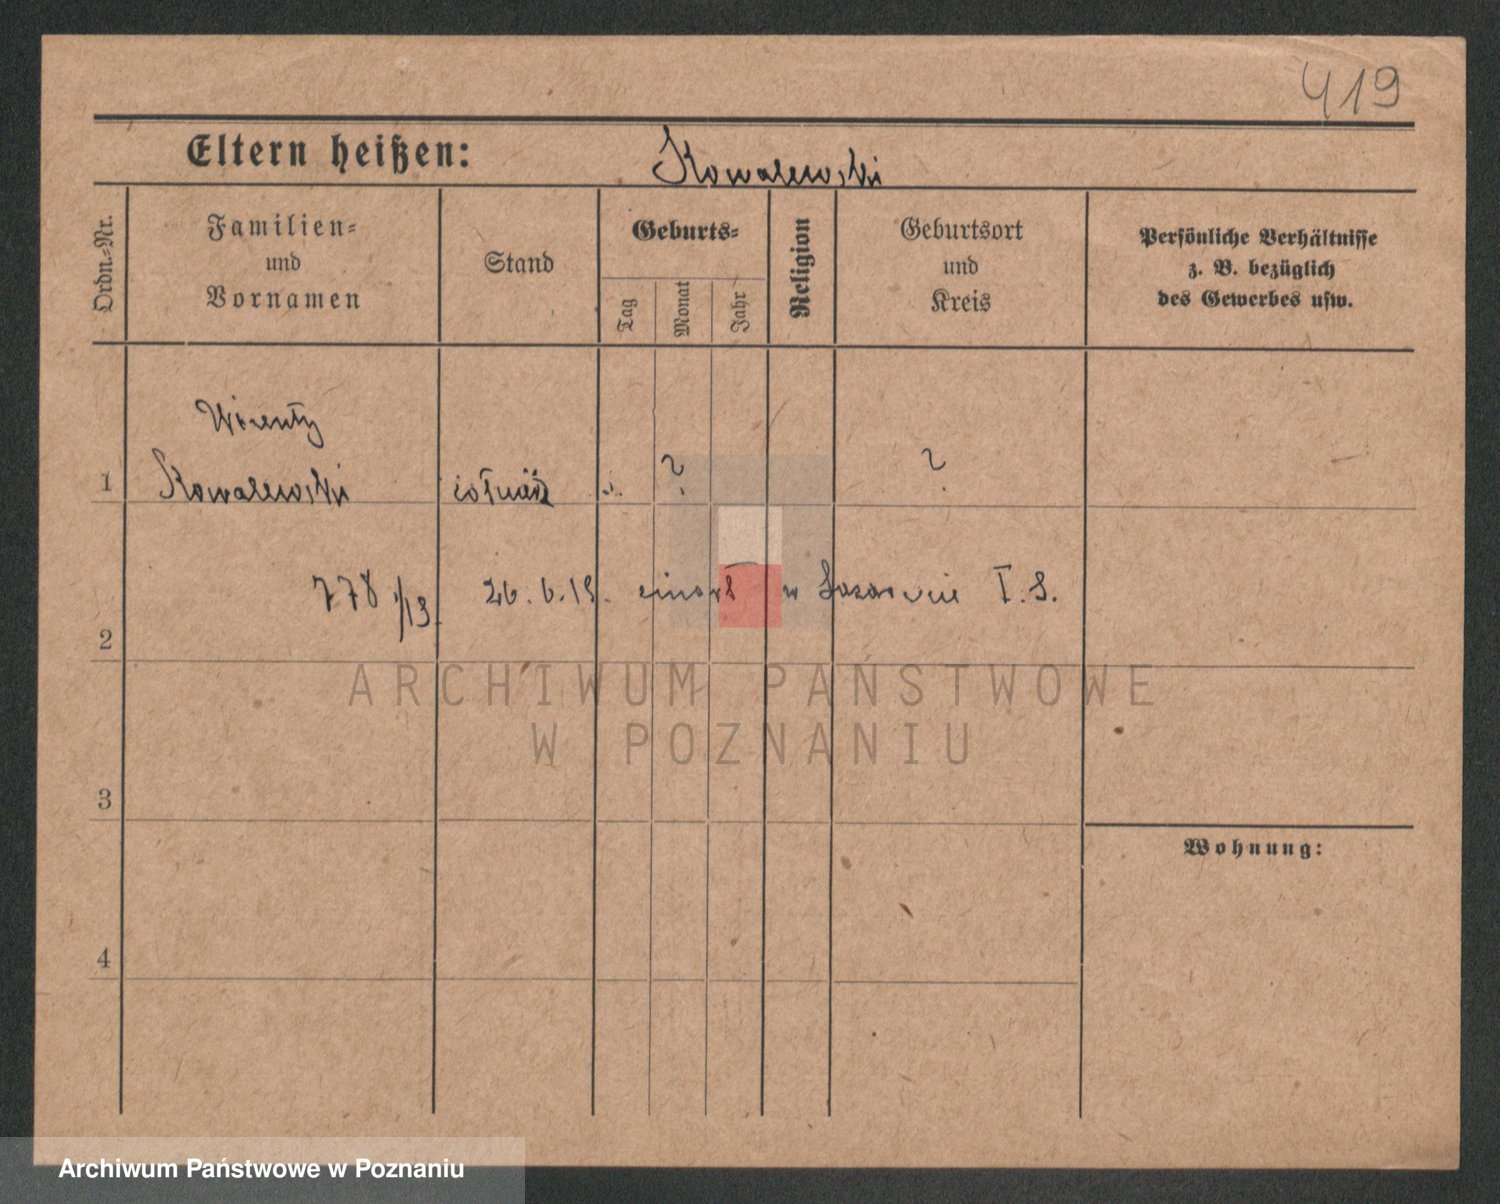 419
Eltern heißen: Kowalewski
Ordn.=Nr.
Familien=
und
Vornamen
Stand
Geburts=
Tag
Monat
Jahr
Religion
Geburtsort
und
Kreis
Persönliche Verhältnisse
z. B. bezüglich
des Gewerbes usw.
Wincenty
1 Kowalewski żołnierz ? ?
778 26.6.19. zmarł w I. S.
2
ARCHIWUM PAŃSTWOWE
W POZNANIU
3
Wohnung:
4
Archiwum Państwowe w Poznaniu